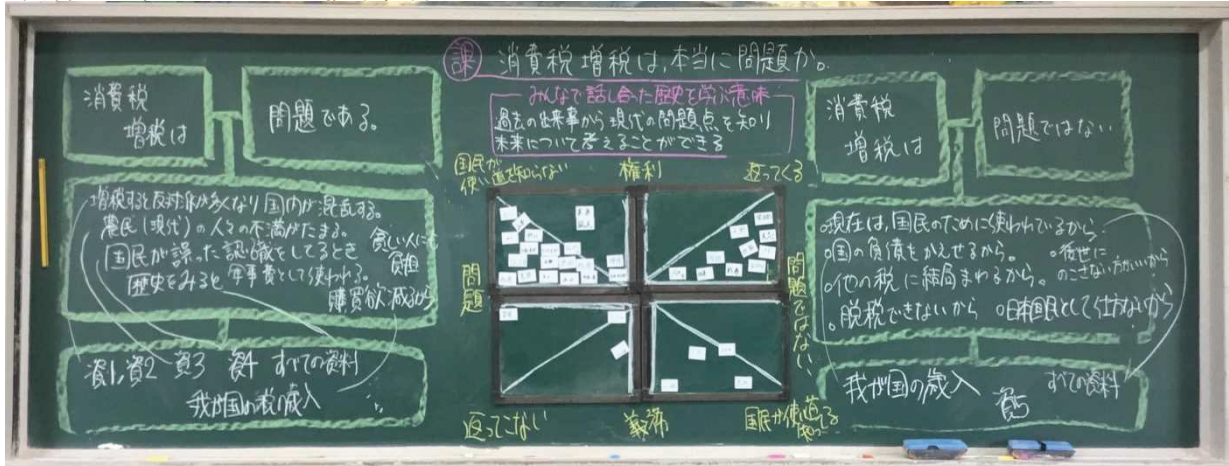 課 消費税増税は、本当に問題か。
みんなで話し合った歴史を学ぶ意味
過去の出来事から現代の問題点を知り
未来について考えることができる
消費税
増税は
問題である。
増税すると反対派が多くなり国内が混乱する。
農民(現代)の人々の不満がたまる。
国民が誤った認識をしてるとき
歴史をみると軍事費として使われる。
貧しい人に
負担
購買欲が減るから
資1,資2 資3 資4 すべての資料
我が国の税の歳入
国民が
使い道を知らない
権利
返ってくる
問題
問題ではない
返ってこない
義務
国民が使い道
消費税
増税は
問題ではない
現在は、国民のために使われているから
国の負債をかえせるから。
後世に
のこさない方がいいから
他の税に結局まわるから。
脱税できないから
日本国民として仕方ないから
我が国の歳入
資5
すべての資料